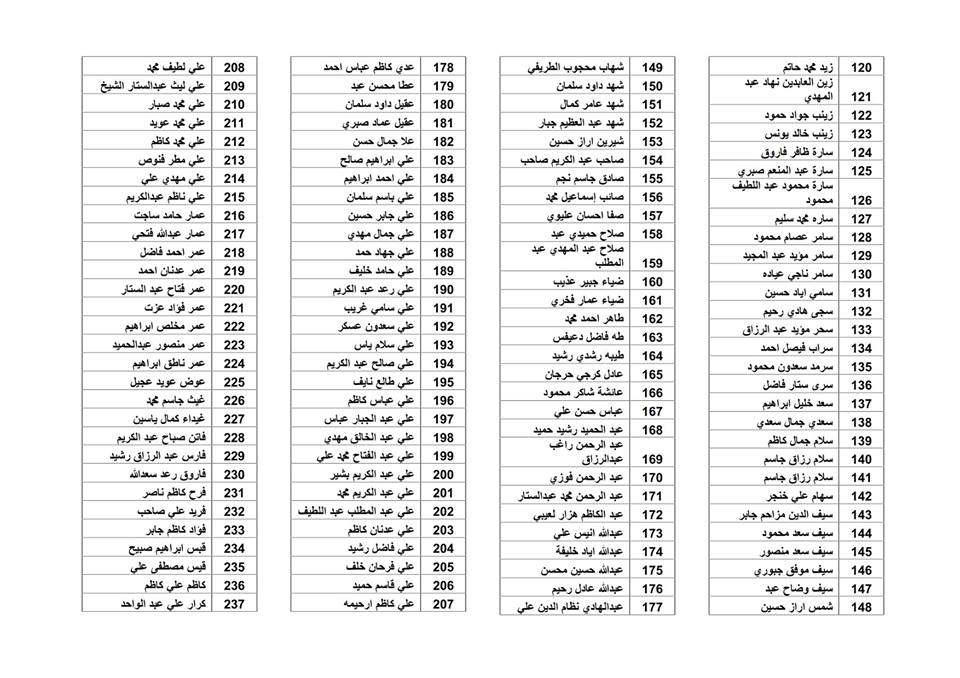 120 زيد محمد حاتم
زين العابدين نهاد عبد
121 المهدي
122 زينب جواد حمود
123 زينب خالد يونس
124 سارة ظافر فاروق
125 سارة عبد المنعم صبري
سارة محمود عبد اللطيف
126 محمود
127 ساره محمد سليم
128 سامر عصام محمود
129 سامر مؤيد عبد المجيد
130 سامر ناجي عياده
131 سامي اياد حسين
132 سجى هادي رحيم
133 سحر مؤيد عبد الرزاق
134 سراب فيصل احمد
135 سرمد سعدون محمود
136 سرى ستار فاضل
137 سعد خليل ابراهيم
138 سعدي جمال سعدي
139 سلام جمال كاظم
140 سلام رزاق جاسم
141 سلام رزاق جاسم
142 سهام علي خنجر
143 سيف الدين مزاحم جابر
144 سيف سعد محمود
145 سيف سعد منصور
146 سيف موفق جبوري
147 سيف وضاح عبد
148 شمس اراز حسين
149 شهاب محجوب الطريفي
150 شهد داود سلمان
151 شهد عامر كمال
152 شهد عبد العظيم جبار
153 شيرين اراز حسين
154 صاحب عبد الكريم صاحب
155 صادق جاسم نجم
156 صائب إسماعيل محمد
157 صفا احسان عليوي
158 صلاح حميدي عبد
صلاح عبد المهدي عبد
159 المطلب
160 ضياء جبير عذيب
161 ضياء عمار فخري
162 طاهر احمد محمد
163 طه فاضل دعيفس
164 طيبه رشدي رشيد
165 عادل كرجي حرجان
166 عائشة شاكر محمود
167 عباس حسن علي
168 عبد الحميد رشيد حميد
عبد الرحمن راغب
169 عبدالرزاق
170 عبد الرحمن فوزي
171 عبد الرحمن محمد عبدالستار
172 عبد الكاظم هزار لعيبي
173 عبدالله انيس علي
174 عبدالله اياد خليفة
175 عبدالله حسين محسن
176 عبدالله عادل رحيم
177 عبدالهادي نظام الدين علي
178 عدي كاظم عباس احمد
179 عطا محسن عبد
180 عقيل داود سلمان
181 عقيل عماد صبري
182 علا جمال حسن
183 علي ابراهيم صالح
184 علي احمد ابراهيم
185 علي باسم سلمان
186 علي جابر حسين
187 علي جمال مهدي
188 علي جهاد حمد
189 علي حامد خليف
190 علي رعد عبد الكريم
191 علي سامي غريب
192 علي سعدون عسكر
193 علي سلام ياس
194 علي صالح عبد الكريم
195 علي طالع نايف
196 علي عباس كاظم
197 علي عبد الجبار عباس
198 علي عبد الخالق مهدي
199 علي عبد الفتاح محمد علي
200 علي عبد الكريم بشير
201 علي عبد الكريم محمد
202 علي عبد المطلب عبد اللطيف
203 علي عدنان كاظم
204 علي فاضل رشيد
205 علي فرحان خلف
206 علي قاسم حميد
207 علي كاظم ارحيمه
208 علي لطيف محمد
209 علي ليث عبدالستار الشيخ
210 علي محمد صبار
211 علي محمد عويد
212 علي محمد كاظم
213 علي مطر فنوص
214 علي مهدي علي
215 علي ناظم عبدالكريم
216 عمار حامد ساجت
217 عمار عبدالله فتحي
218 عمر احمد فاضل
219 عمر عدنان احمد
220 عمر فتاح عبد الستار
221 عمر فؤاد عزت
222 عمر مخلص ابراهيم
223 عمر منصور عبدالحميد
224 عمر ناطق ابراهيم
225 عوض عويد عجيل
226 غيث جاسم محمد
227 غيداء كمال ياسين
228 فاتن صباح عبد الكريم
229 فارس عبد الرزاق رشيد
230 فاروق رعد سعدالله
231 فرح كاظم ناصر
232 فريد علي صاحب
233 فؤاد كاظم جابر
234 قبس ابراهيم صبيح
235 قيس مصطفى علي
236 كاظم علي كاظم
237 كرار علي عبد الواحد